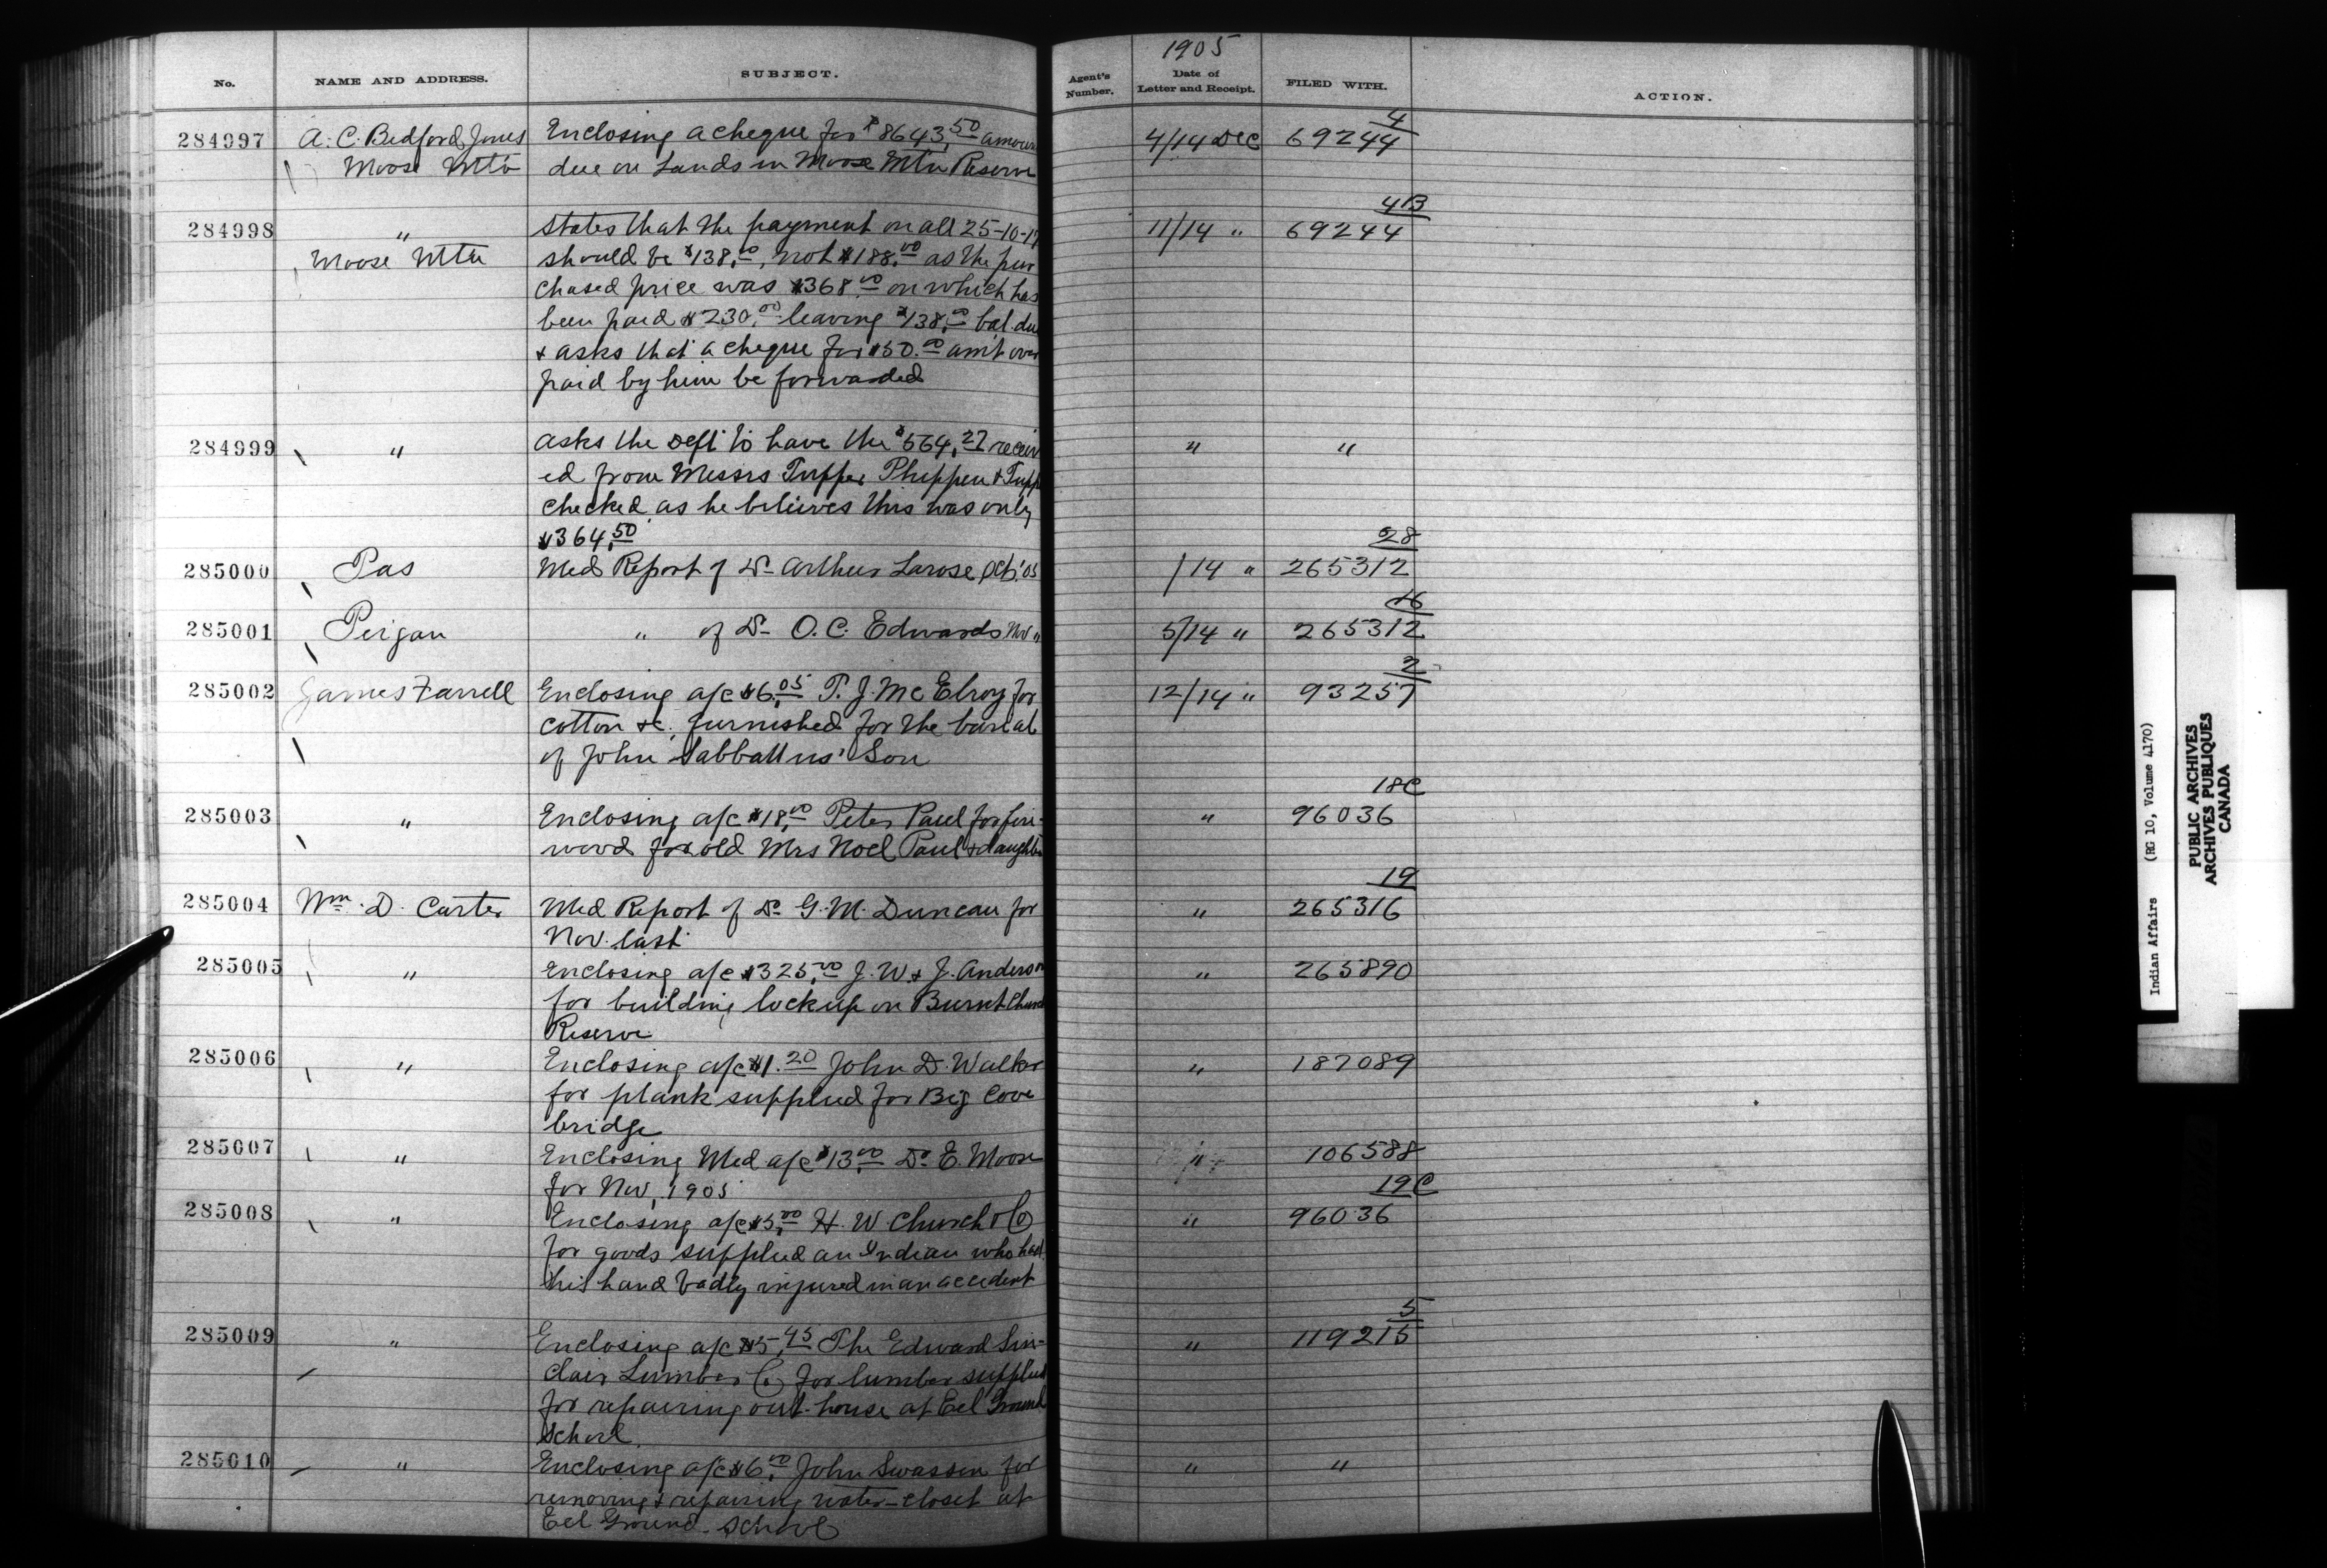 1905
No. NAME AND ADDRESS. SUBJECT. Agent's Number. Date of Letter and Receipt. FILED WITH. ACTION.
4
284997 A. C. Bedford Jones Enclosing a cheque for $8643.50 amoun 4/14 Dec 69244
Moose Mtn due on Lands in Moose Mtn Reserve
4B
284998 " States that the payment on all 25-10-1 11/14 " 69244
Moose Mtn should be $138.00, not $188.00 as the pur
chased price was $368.00 on which has
been paid $230.00 leaving $138.00 bal. due
& asks that a cheque for $50.00 am't over
paid by him be forwarded
284999 " asks the Dept to have the $564.27 receiv " "
ed from Messrs Tupper Phippen & Tupp
checked as he believes this was only
$364.50
28
285000 Pas Med Report of Dr Arthur Larose Oct. '05 /14 " 265312
16
285001 Peigan " of Dr O. C. Edwards Nov " 5/14 " 265312
2
285002 James Farrell Enclosing a/c $6.05 T. J. McElroy for 12/14 " 93257
cotton &c. furnished for the burial
of John Sabbattus' Son
18C
285003 " Enclosing a/c $18.00 Peter Paul for fire- " 96036
wood for old Mrs Noel Paul & daughte
19
285004 Wm. D. Carter Med Report of Dr G. M. Duncan for " 265316
Nov. last
285005 " Enclosing a/c $325.00 J. W. & J. Anderson " 265890
for building lockup on Burnt Church
Reserve
285006 " Enclosing a/c $1.20 John D. Walker " 187089
for plank supplied for Big Cove
bridge
285007 " Enclosing Med a/c $13.00 Dr E. Moore " 106588
for Nov, 1905
19C
285008 " Enclosing a/c $5.00 H. W. Church & Co " 96036
for goods supplied an Indian who had
his hand badly injured in an accident
5
285009 " Enclosing a/c $5.45 The Edward Sin- " 119215
clair Lumber Co for lumber supplied
for repairing out-house at Eel Ground
School.
285010 " Enclosing a/c $6.00 John Swassen for " "
removing & repairing water-closet at
Eel Ground School
Indian Affairs (RG 10, Volume 4170)
PUBLIC ARCHIVES
ARCHIVES PUBLIQUES
CANADA